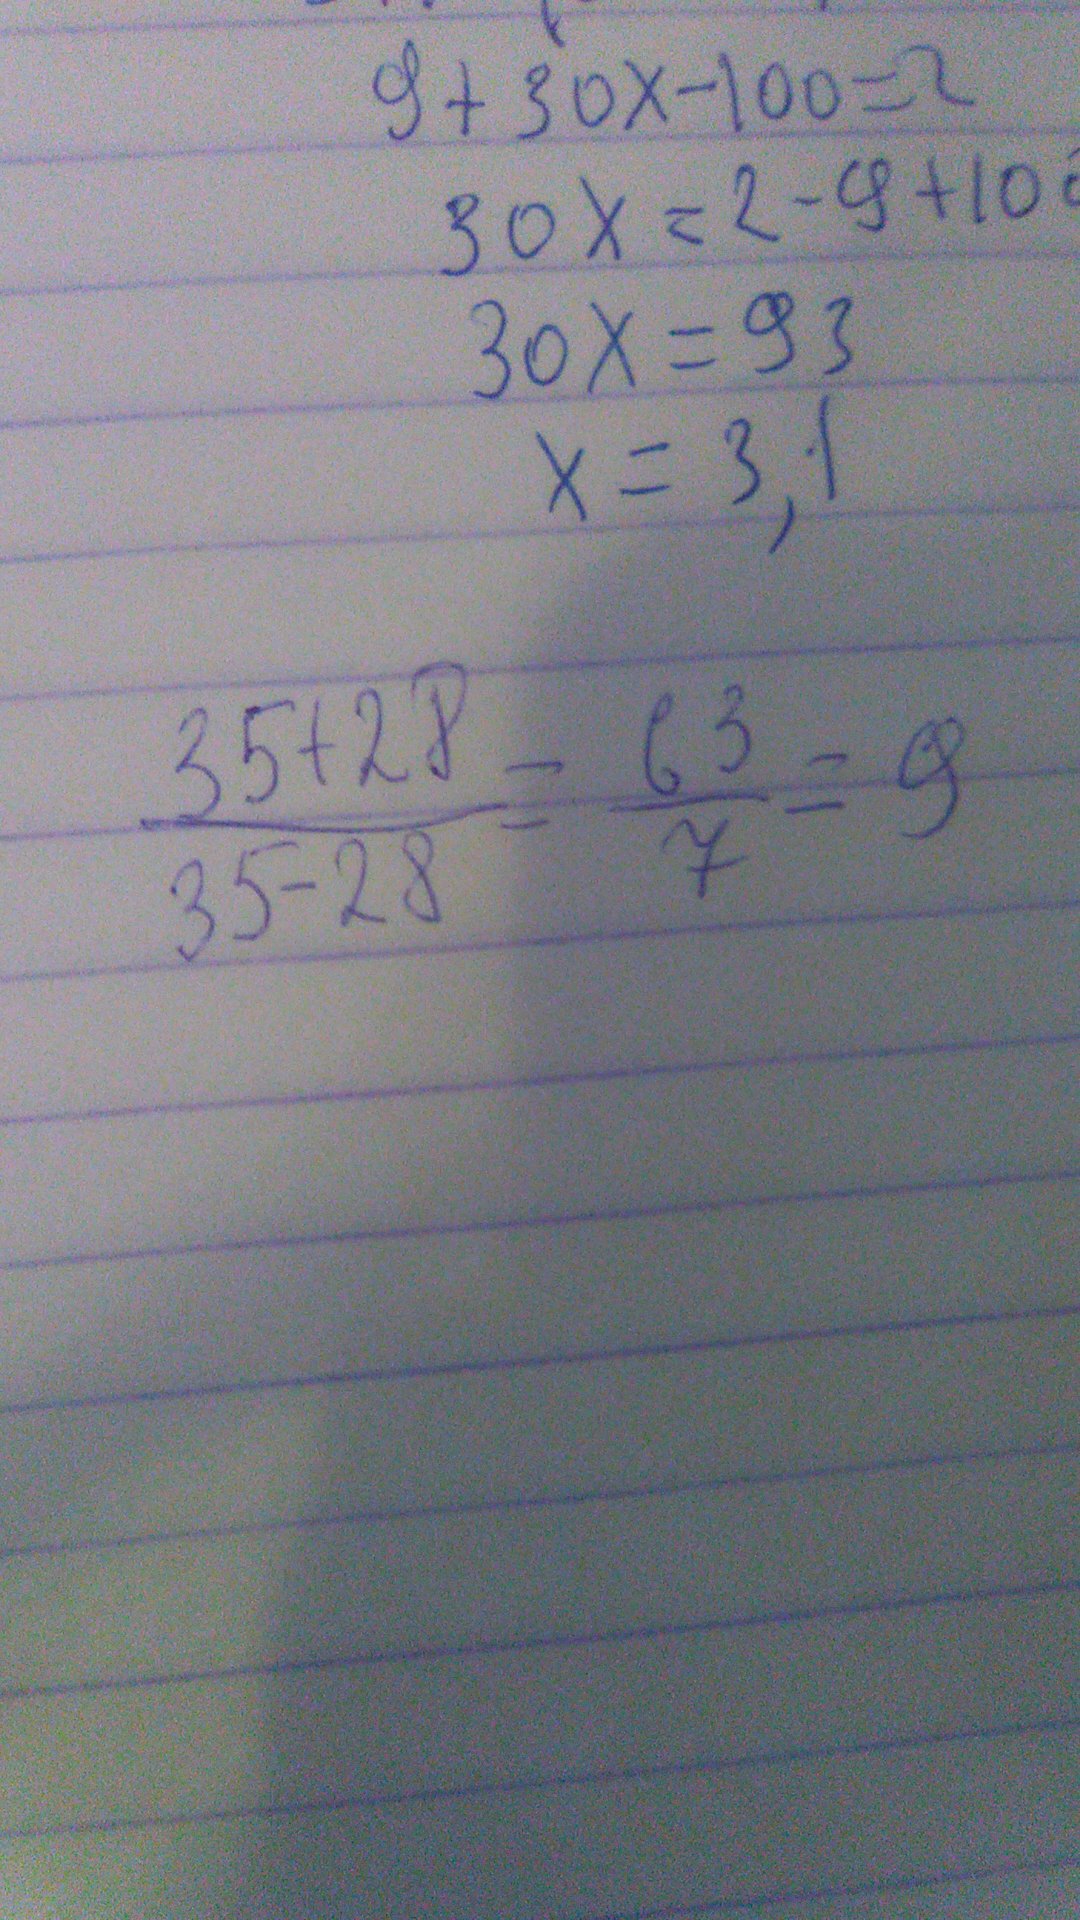 9+30x-100=2
30x=2-9+100
30x=93
x=3,1
35+28
35-28 = 63
7 = 9